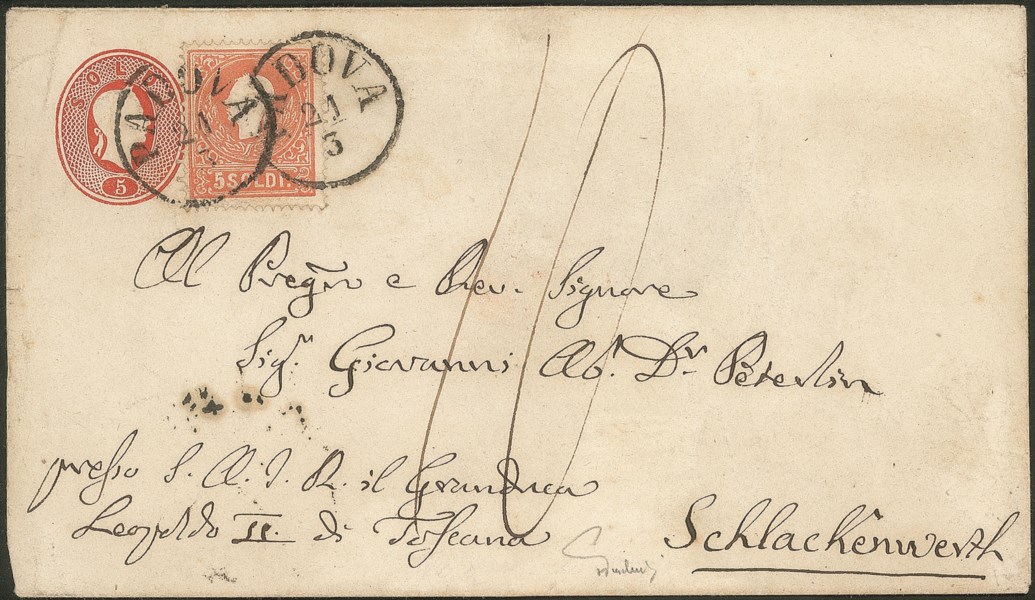 SOLDI
5
5 SOLDI.
PADOVA
21
PADOVA
21
3
10
Al Pregᵐᵒ e Rev. Signore
Sigʳ. Giovanni Abᵉ. Dʳ. Peterlin
presso S. A. I. R. il Granduca
Leopoldo II. di Toscana
Schlackenwerth